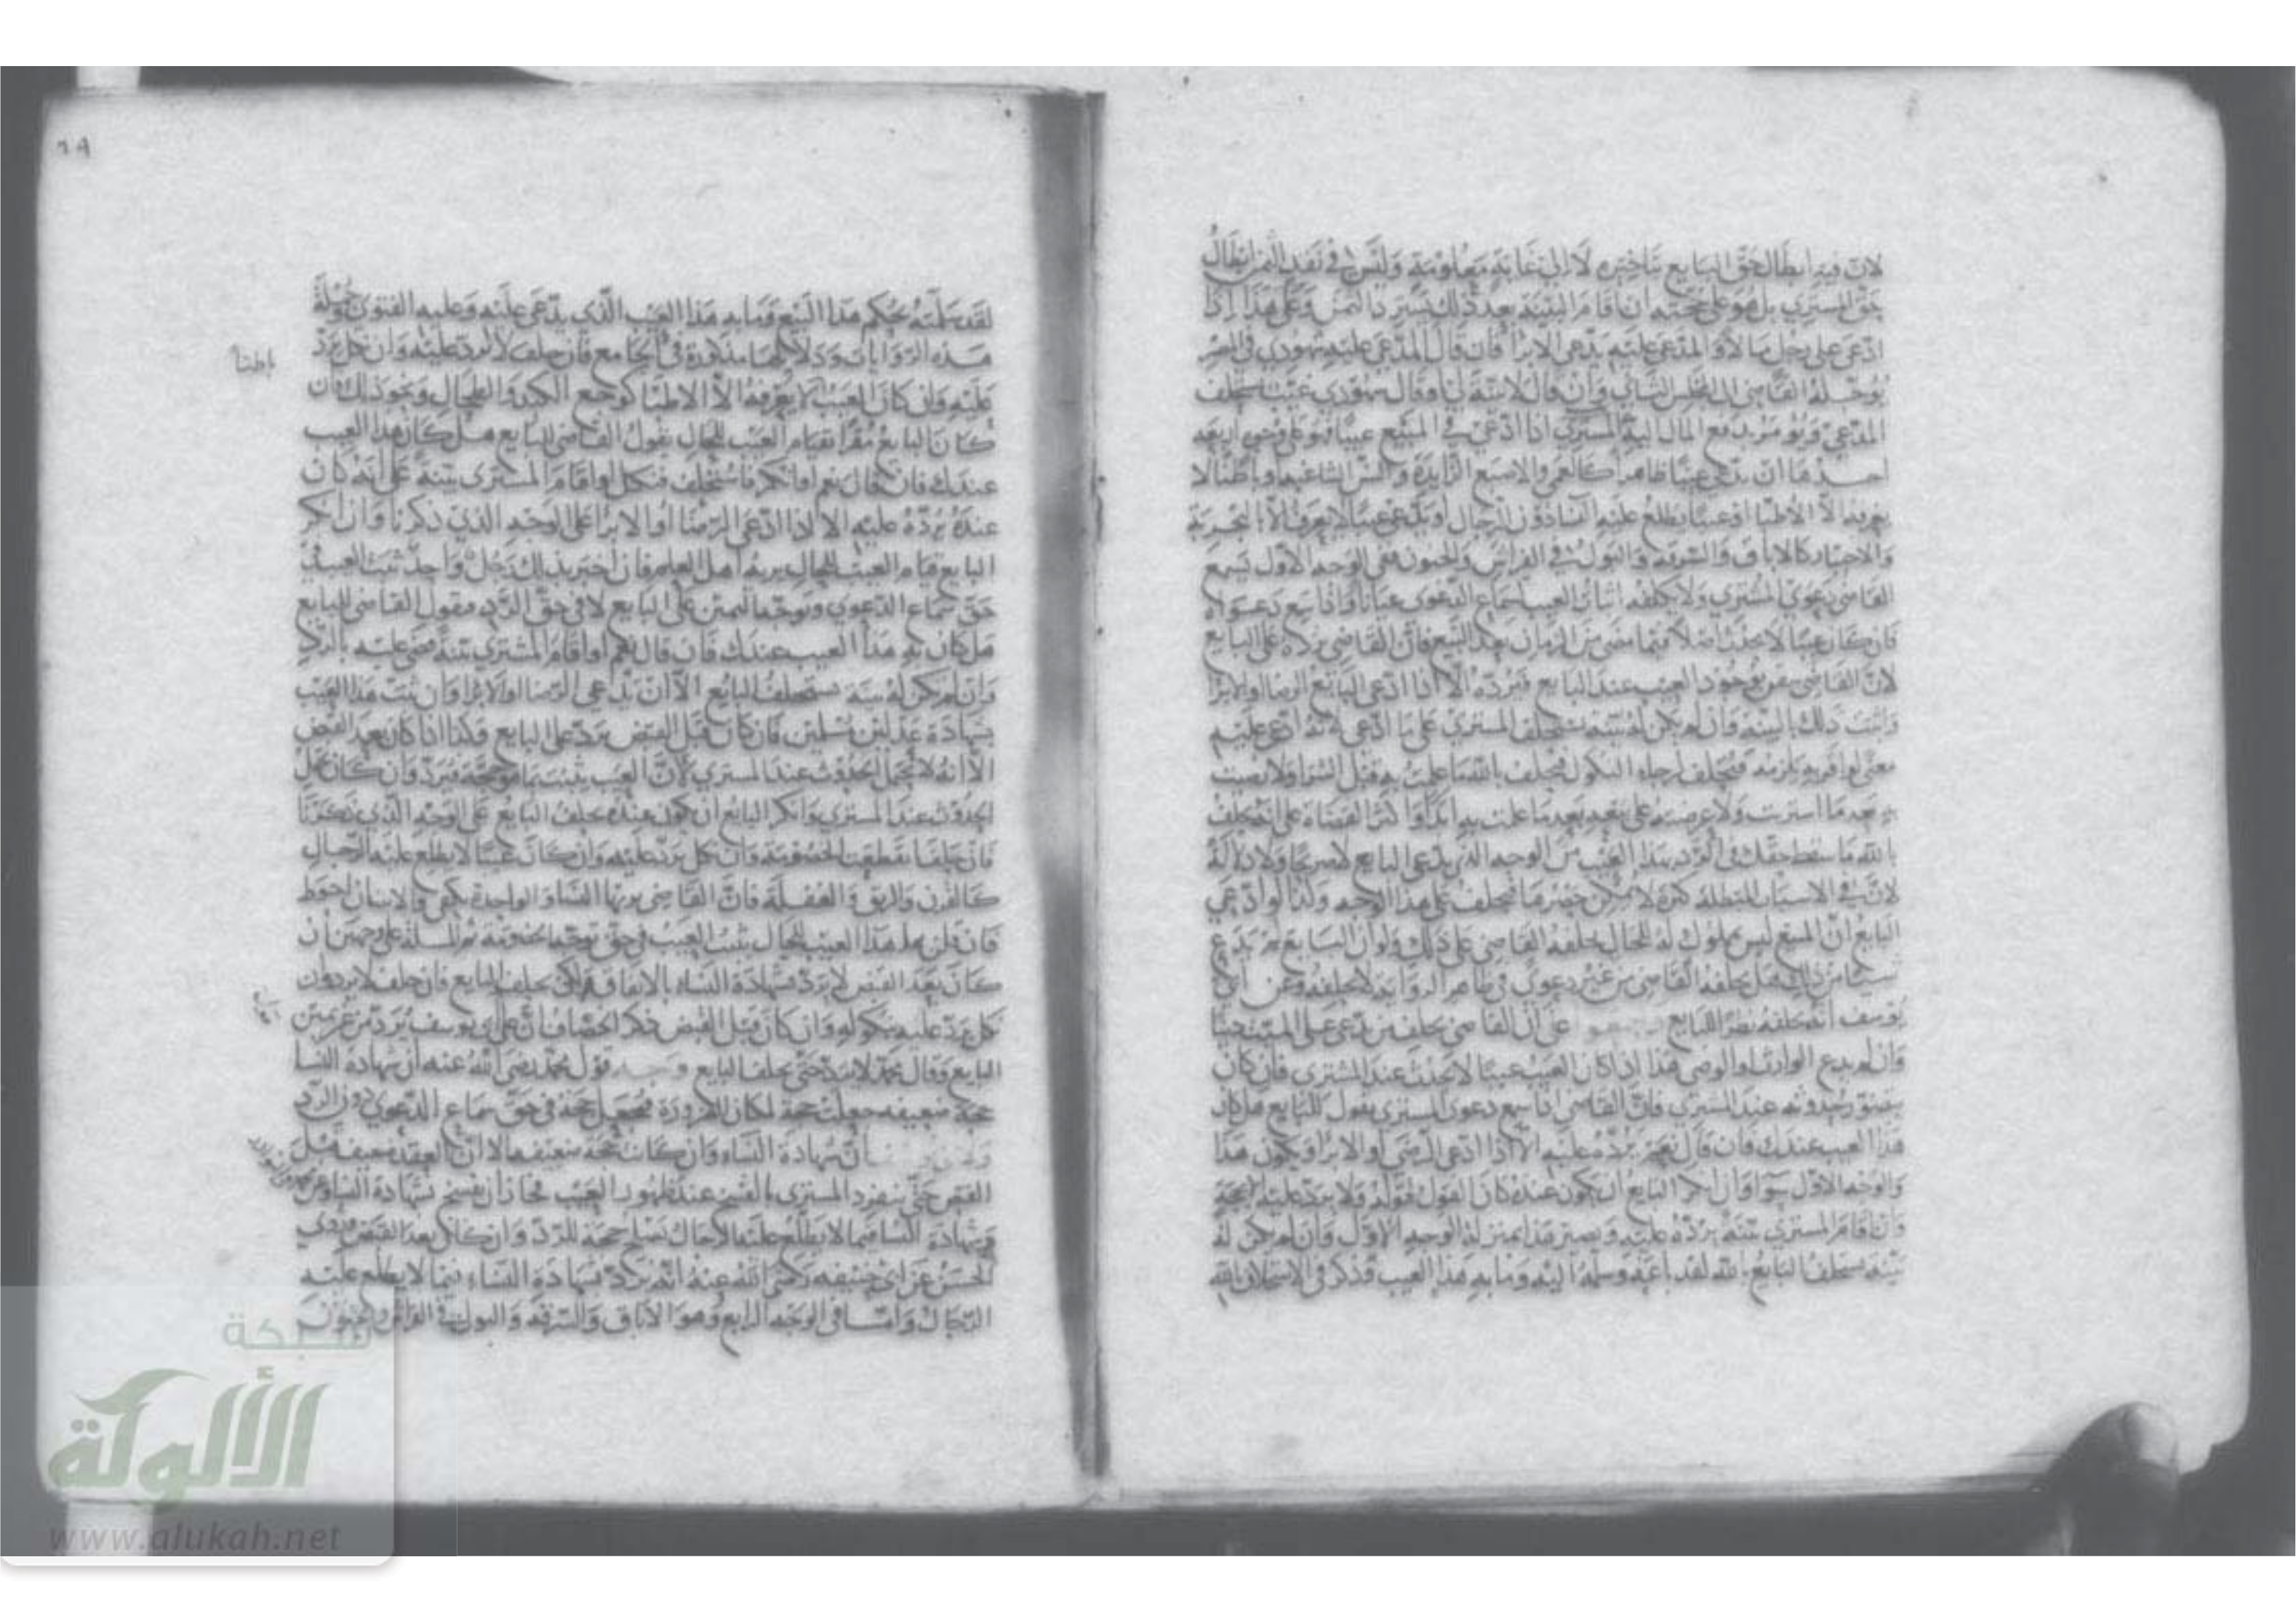 لان فيه ابطال حق البايع بتاخيره لا الى غاية معلومة وليس في نقد الثمن ابطال
حق المشتري بل هو على حجته ان اقام البينة بعد ذلك يسترد الثمن وعلى هذا اذا
ادعى على رجل مالا والمدعى عليه يدعى الابرا فان قال المدعى عليه شهودي في المصر
يوجله القاضي الى المجلس الثاني وان قال لا بينة لي او قال شهودي غيب يستحلف
المدعي ويؤمر بدفع المال اليه المشتري اذا ادعى في المبيع عيبا فهو على وجوه اربعة
احدها ان يدعي عيبا ظاهرا كالعمى والاصبع الزايدة والسن الشاغية او باطنا لا
يعرفه الا الاطبا او عيبا يطلع عليه النسا دون الرجال او يدعي عيبا لا يعرف الا بالتجربة
والاختبار كالاباق والسرقة والبول في الفراش والجنون ففي الوجه الاول يسمع
القاضي دعوى المشتري ولا يكلفه اثبات العيب لسماع الدعوى عيانا واذا سمع دعواه
فان كان عيبا لا يحدث اصلا فيما مضى من الزمان بعد البيع فان القاضي يرده على البايع
لان القاضي يتيقن بوجود العيب عند البايع فيرده الا اذا ادعى البايع الرضا او الابرا
واثبت ذلك بالبينة وان لم يكن له بينة يستحلف المشتري على ما ادعى لانه ادعى عليه
معنى لو اقر به يلزمه فيحلف لرجاء النكول فيحلف بالله ما علمت به قبل الشرا ولا رضيت
به بعد ما اشتريت ولا عرضته على بيع بعد ما علمت به ابدا واكثر القضاة على انه يحلف
بالله ما سقط حقك في الرد بهذا العيب من الوجه الذي يدعى البايع لا صريحا ولا دلالة
لان في الاسباب المبطلة كثرة لا يمكن حصرها فيحلف على هذا الوجه وكذا لو ادعى
البايع ان المبيع ليس بمملوك له للحال يحلفه القاضي على ذلك ولو ان البايع لم يدع
شيئا من ذلك هل يحلفه القاضي من غير دعوى في ظاهر الرواية لا يحلفه وعن ابي
يوسف انه يحلفه نظرا للبايع على ان القاضي يحلف من يدعى على الميت دينا
وان لم يدع الوارث او الوصي هذا اذا كان العيب عيبا لا يحدث عند المشتري فان كان
يتصور حدوثه عند المشتري فان القاضي اذا سمع دعوى المشتري يقول للبايع هل كان
هذا العيب عندك فان قال نعم يرده عليه الا اذا ادعى الرضى او الابرا ويكون هذا
والوجه الاول سوا وان انكر البايع ان يكون عنده كان القول قوله ولا يرد عليه الا بحجة
وان اقام المشتري بينة يرده عليه ويصير هذا بمنزلة الوجه الاول وان لم يكن له
بينة يستحلف البايع بالله لقد باعه وسلمه اليه وما به هذا العيب فذكر في الاستحلاف بالله
٦٩
لقد سلمته بحكم هذا البيع وما به هذا العيب الذي يدعى عليه وعليه الفتوى وجملة
هذه الروايات ودلايلها مذكورة في الجامع فان حلف لا يرد عليه وان نكل يرد
عليه وان كان العيب لا يعرفه الا الاطبا كوجع الكبد والطحال ونحو ذلك فان
باطنا
كان البايع مقرا بقيام العيب للحال يقول القاضي للبايع هل كان هذا العيب
عندك فان قال نعم او انكر فاستحلف فنكل او اقام المشتري بينة على انه كان
عنده يرده عليه الا اذا ادعى الرضا او الابرا على الوجه الذي ذكرنا وان انكر
البايع قيام العيب للحال يريه اهل العلم فان اخبر بذلك رجل واحد ثبت العيب في
حق سماع الدعوى وتوجه اليمين على البايع لا في حق الرد فيقول القاضي للبايع
هل كان به هذا العيب عندك فان قال نعم او اقام المشتري بينة قضى عليه بالرد
وان لم يكن له بينة يستحلف البايع الا ان يدعى الرضا او الابرا وان ثبت هذا العيب
بشهادة عدلين مسلمين فان كان قبل القبض يرد على البايع وكذا اذا كان بعد القبض
الا انه لا يحتمل الحدوث عند المشتري لان العيب يثبت بما هو حجة فيرد وان كان يحتمل
الحدوث عند المشتري وانكر البايع ان يكون عنده يحلف البايع على الوجه الذي ذكرنا
فان حلف انقطعت الخصومة وان نكل يرد عليه وان كان عيبا لا يطلع عليه الرجال
كالقرن والرتق والعفلة فان القاضي يريها النسا والواحدة تكفي والاثنان احوط
فان قلن بها هذا العيب للحال يثبت العيب في حق توجه الخصومة ثم المسئلة على وجهين ان
كان بعد القبض لا يرد بشهادة النساء بالاتفاق ولكن يحلف البايع فان حلف لا يرد وان
نكل يرد عليه بنكوله وان كان قبل القبض ذكر الخصاف ان على قول ابي يوسف يرد من غير يمين
البايع وقال محمد لا يرد حتى يحلف البايع وجه قول محمد رضى الله عنه ان شهادة النسا
حجة ضعيفه جعلت حجة لمكان الضرورة فجعل حجة في حق سماع الدعوى دون الرد
ان شهادة النساء وان كانت حجة ضعيفة الا ان العقد ضعيف قبل
القبض حتى ينفرد المشتري بالفسخ عند ظهور العيب فجاز ان يفسخ بشهادة النساء
وشهادة النسا فيما لا يطلع عليه الرجال تصلح حجة للرد وان كان بعد القبض فروي
الحسن عن ابي حنيفه رضى الله عنه انه يرد بشهادة النساء فيما لا يطلع عليه
الرجال واما في الوجه الرابع وهو الاباق والسرقة والبول في الفراش والجنون
شبكة
الألوكة
www.alukah.net